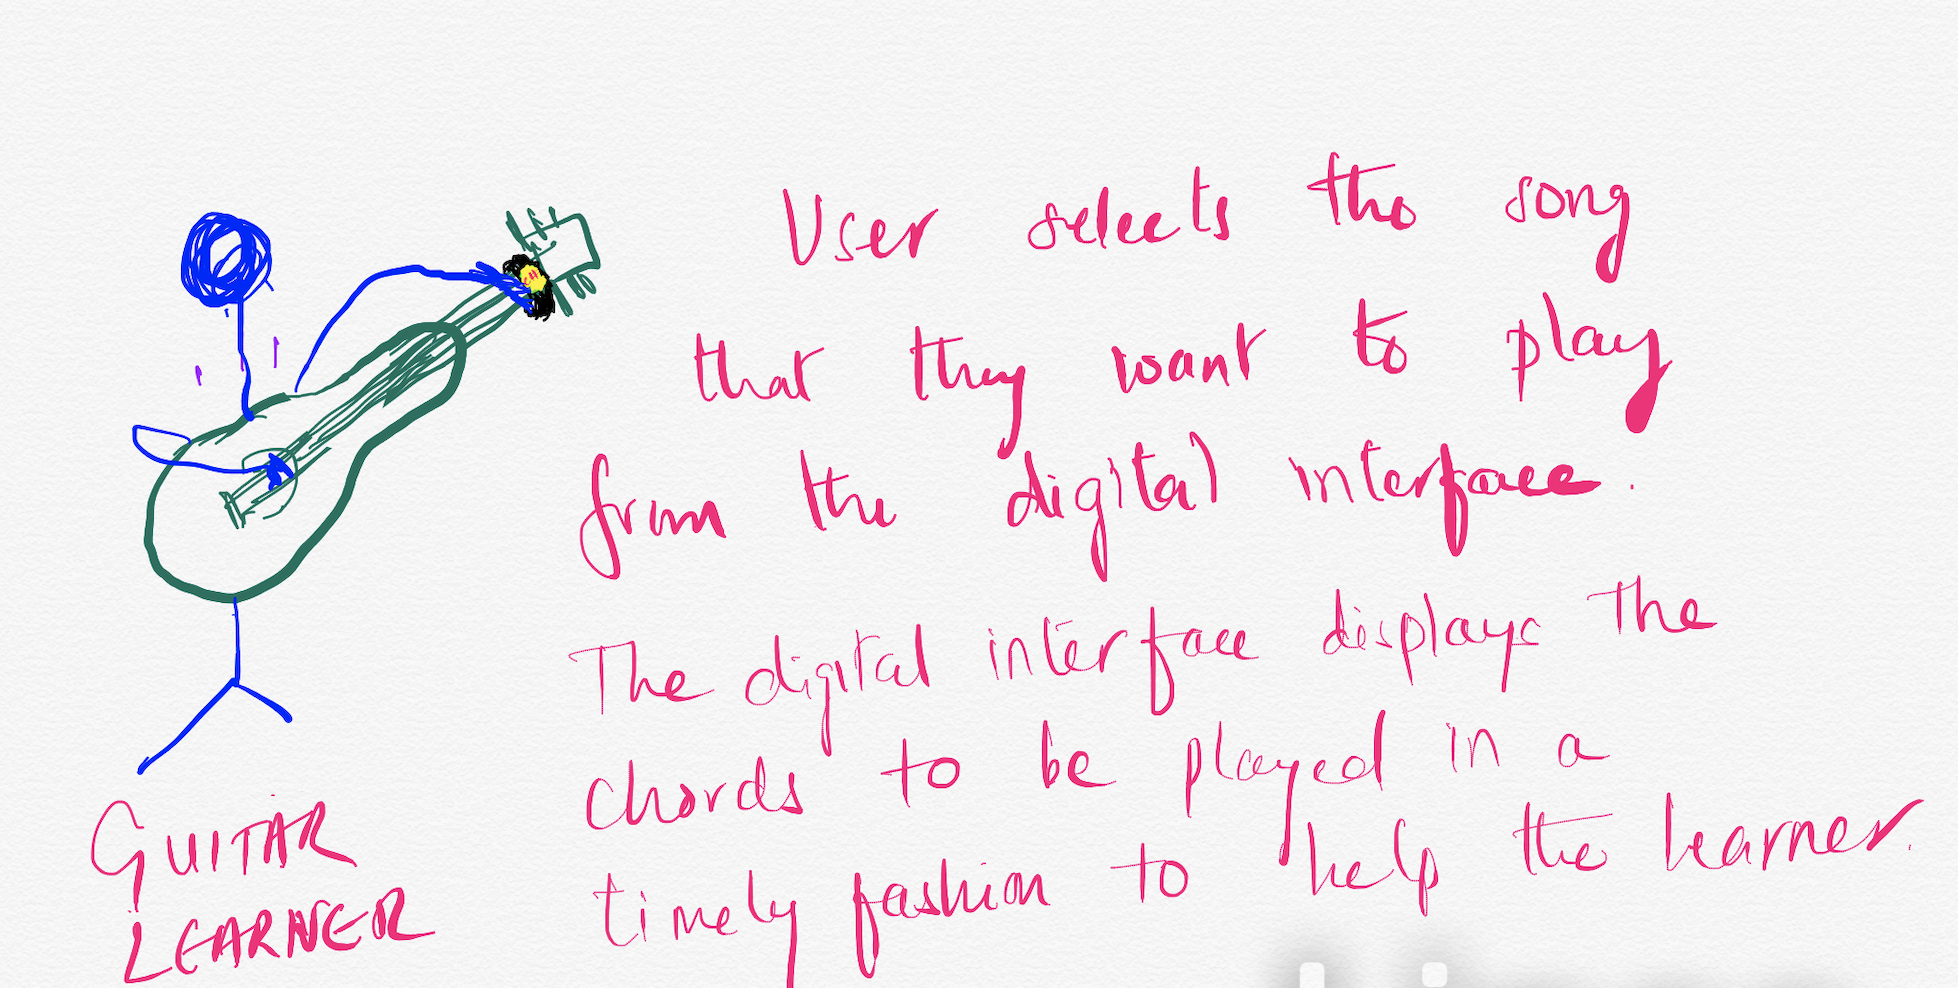 User selects the song
that they want to play
from the digital interface.
The digital interface displays the
chords to be played in a
timely fashion to help the learner.
GUITAR
LEARNER